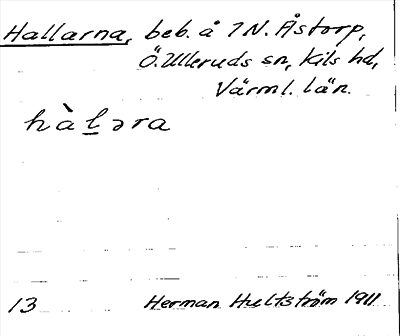 Hallarna, beb. å 7 N. Åstorp,
Ö. Ulleruds sn, Kils hd,
Värml. län.
hàḻəra
13 Herman Hultström 1911